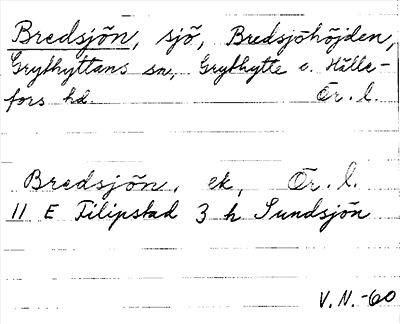 Bredsjön, sjö, Bredsjöhöjden,
Grythyttans sn, Grythytte o. Hälle-
fors hd. Ör. l.
Bredsjön, ek, Ör. l.
11 E Filipstad 3 h Sundsjön
V.N.-60